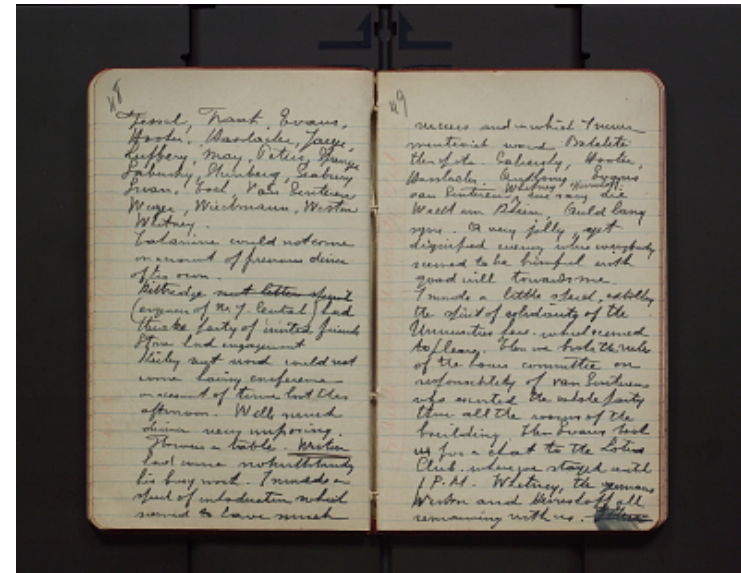 48
Tessel, Frank, Evans,
Hooker, Hasslacher,
Lufbery, May, Peter,
Sabursky, Steinberg, Seabury
Swan, Toch, Van Sinteren
Weyer, Wiechmann, Weston
Whitney.
could not come
on account of previous dinner
of his own.
Kittredge sent letter
(engineer of N.Y. Central) had
party of invited friends
Stone had engagement
sent word could not
come having conference
on account of
afternoon. Well served
dinner very imposing.
Flowers on table. Weston
had come notwithstanding
his busy work. I made a
speech of introduction which
seemed to have much
49
success and in which I never
mentioned word Bakelite
Hooker,
Hasslacher, Evans
van Sinteren, Whitney, Hereshoff: we sang die
Wacht am Rhein, Auld lang
syne. A very jolly, yet
dignified evening where everybody
seemed to be brimful with
good will towards me.
I made a little speech, extolling
the spirit of solidarity of the
which seemed
to please. Then we broke the rules
of the house committee on
responsibility of van Sinteren
who escorted the whole party
thru all the rooms of the
building. Then Evans took
us for a chat to the Lotus
Club where we stayed until
1 P.M. Whitney, the
Weston and Hereshoff all
remaining with us.